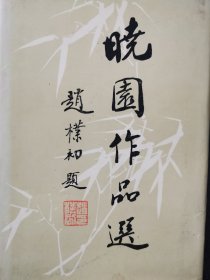 曉園作品選
趙樸初題